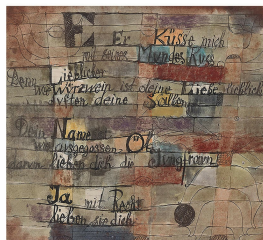 E Er Küsse mich
mit seines Mundes Kuss
Denn Lieblicher
wie Würzwein ist deine Liebe lieblich
duften deine Salben
Dein Name ist
wie ausgegossen Öl
darum lieben dich die Jungfraun!
Ja mit Recht
lieben sie dich